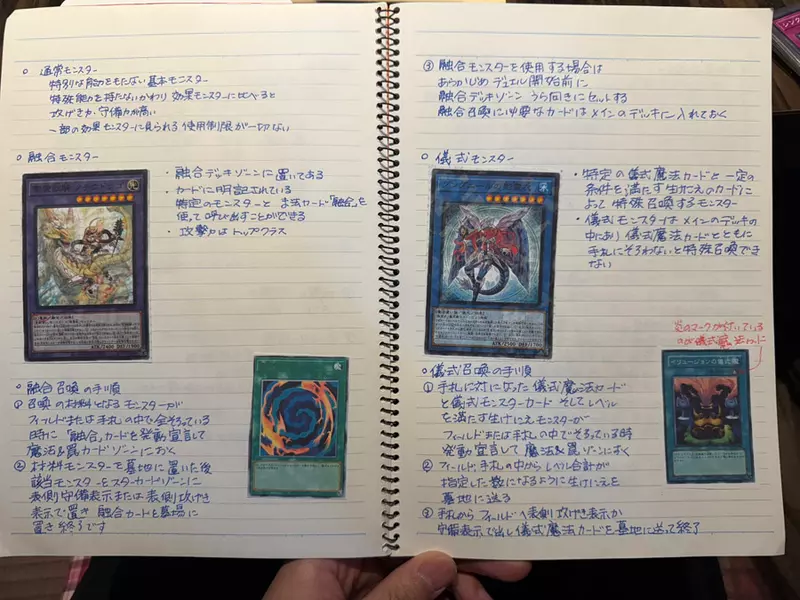 ○ 通常モンスター
特別な能力をもたない基本モンスター
特殊能力を持たないかわり 効果モンスターに比べると
攻げき力、守備力が高い
一部の効果モンスターに見られる使用制限が一切ない
○ 融合モンスター
・融合デッキゾーンに置いてある
・カードに明記されている
特定のモンスターと 魔法カード「融合」を
使って呼び出すことができる
・攻撃力はトップクラス
○ 融合召喚の手順
① 召喚の材料となるモンスターが
フィールドまたは手札の中で全そろっている
時に「融合」カードを発動宣言して
魔法&罠カードゾーンにおく
② 材料モンスターを墓地に置いた後
該当モンスターをスターカードゾーンに
表側守備表示または表側攻げき
表示で置き 融合カードを墓場に
置き終了です
③ 融合モンスターを使用する場合は
あらかじめデュエル開始前に
融合デッキゾーン うら向きにセットする
融合召喚に必要なカードはメインのデッキに入れておく
○ 儀式モンスター
・特定の儀式魔法カードと一定の
条件を満たす生けにえのカードに
よって特殊召喚するモンスター
・儀式モンスターはメインのデッキの
中にあり 儀式魔法カードとともに
手札にそろわないと特殊召喚でき
ない
炎のマークが付いている
のが儀式魔法カード
イリュージョンの儀式
○ 儀式召喚の手順
① 手札に対になった儀式魔法カード
と儀式モンスターカード そしてレベル
を満たす生けにえモンスターが
フィールドまたは手札の中でそろっている時
発動宣言して魔法&罠ゾーンにおく
② フィールド、手札の中からレベル合計が
指定した数になるように生けにえを
墓地に送る
③ 手札からフィールドへ表側攻げき表示か
守備表示で出し儀式魔法カードを墓地に送って終了